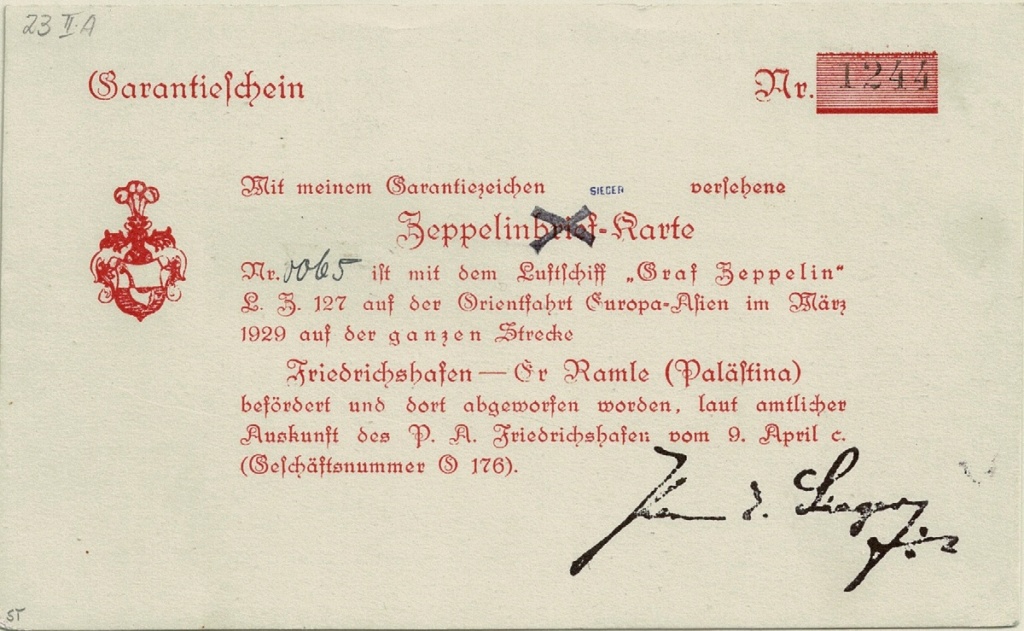 23 II. A
Garantieschein
Nr. 1244
Mit meinem Garantiezeichen SIEGER versehene
Zeppelinbrief-Karte
Nr. 0065 ist mit dem Luftschiff „Graf Zeppelin“
L. Z. 127 auf der Orientfahrt Europa-Asien im März
1929 auf der ganzen Strecke
Friedrichshafen — Er Ramle (Palästina)
befördert und dort abgeworfen worden, laut amtlicher
Auskunft des P. A. Friedrichshafen vom 9. April c.
(Geschäftsnummer O 176).
Sieger
ST